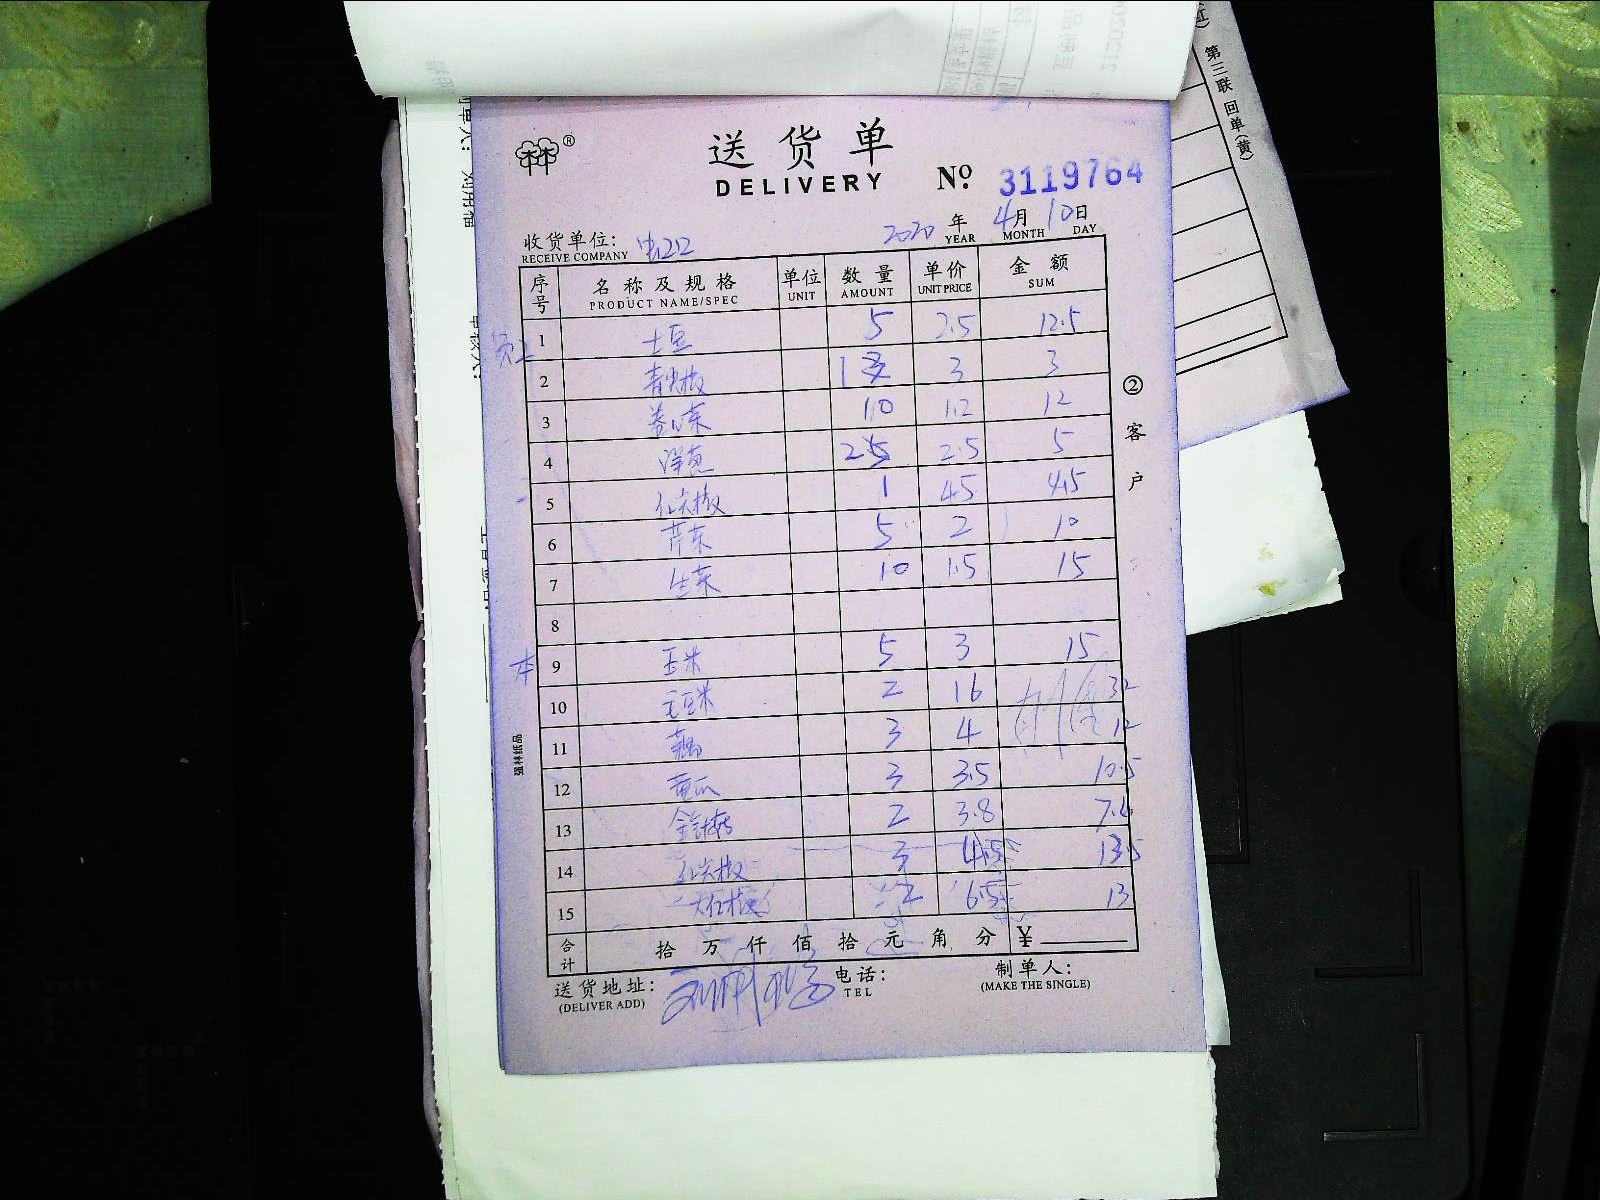 送货单
DELIVERY
№ 3119764
2020 年 4 月 10 日
YEAR MONTH DAY
收货单位:
RECEIVE COMPANY
序号 名称及规格 单位 数量 单价 金额
PRODUCT NAME/SPEC UNIT AMOUNT UNIT PRICE SUM
1 土豆 5 2.5 12.5
2 青尖椒 1 3 3
3 卷心菜 10 1.2 12
4 洋葱 2 2.5 5
5 红尖椒 1 4.5 4.5
6 芹菜 5 2 10
7 生菜 10 1.5 15
8
本
9 玉米 5 3 15
10 毛豆米 2 16 32
11 藕 3 4 12
12 黄瓜 3 3.5 10.5
13 金针菇 2 3.8 7.6
14 红尖椒 3 4.5 13.5
15 大红椒 2 6.5 13
合计 拾 万 仟 佰 拾 元 角 分 ¥
送货地址:
(DELIVER ADD)
电话:
TEL
制单人:
(MAKE THE SINGLE)
②客户
强林纸品
第三联 回单(黄)